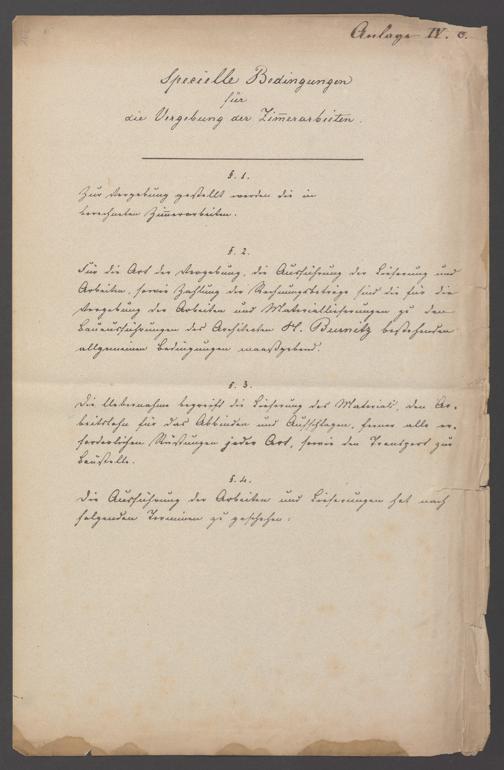 Anlage IV. c.
Specielle Bedingungen
für
die Vergebung der Zim̅erarbeiten.
§. 1.
Zur Vergebung gestellt werden die in
berechneten Zim̅erarbeiten.
§. 2.
Für die Art der Vergebung, die Ausführung der Lieferung und
Arbeiten, sowie Zahlung der Rechnungsbeträge sind die für die
Vergebung der Arbeiten und Materiallieferungen zu den
Bauausführungen des Architekten H. Burnitz bestehenden
allgemeinen Bedingungen maaßgebend.
§. 3.
Die Uebernahme begreift die Lieferung des Materials, den Ar-
beitslohn für das Abbinden und Aufschlagen, ferner alle er-
forderlichen Rüstungen jeder Art, sowie den Transport zur
Baustelle.
§. 4.
Die Ausführung der Arbeiten und Lieferungen hat nach
folgenden Terminen zu geschehen: